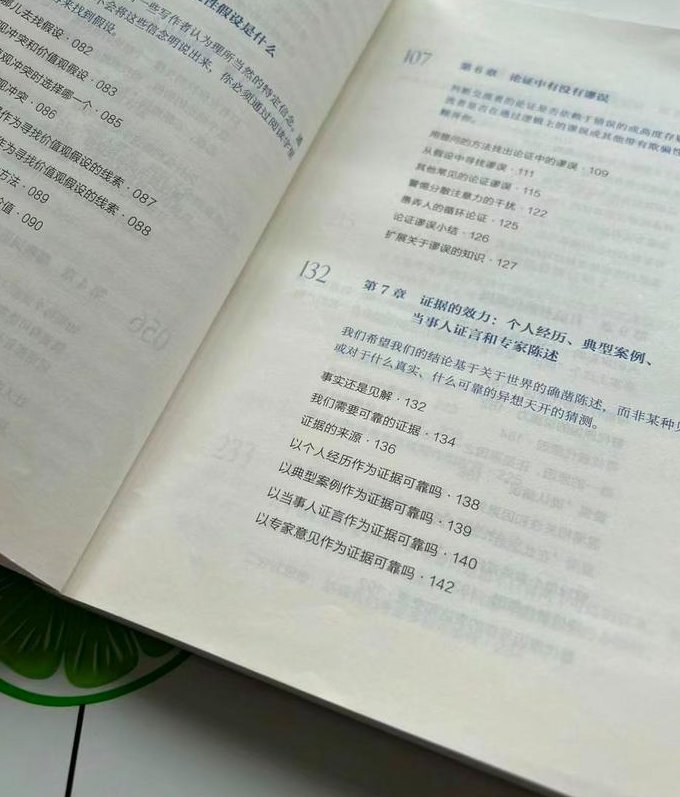 性假设是什么
一些写作者认为理所当然的特定信念。通
不会将这些信念明说出来，你必须通过阅读字里
来找到假设。
哪儿去找假设·082
观冲突和价值观假设·083
观冲突时选择哪一个·085
观冲突·086
作为寻找价值观假设的线索·087
作为寻找价值观假设的线索·088
方法·089
价值·090
107
第6章 论证中有没有谬误
判断交流者的论证是否依赖于错误的或高度存疑
流者是否在通过逻辑上的谬误或其他带有欺骗性
糊弄你。
用提问的方法找出论证中的谬误·109
从假设中寻找谬误·111
其他常见的论证谬误·115
警惕分散注意力的干扰·122
愚弄人的循环论证·125
论证谬误小结·126
扩展关于谬误的知识·127
132
第7章 证据的效力：个人经历、典型案例、
当事人证言和专家陈述
我们希望我们的结论基于关于世界的确凿陈述，而非某种
或对于什么真实、什么可靠的异想天开的猜测。
事实还是见解·132
我们需要可靠的证据·134
证据的来源·136
以个人经历作为证据可靠吗·138
以典型案例作为证据可靠吗·139
以当事人证言作为证据可靠吗·140
以专家意见作为证据可靠吗·142